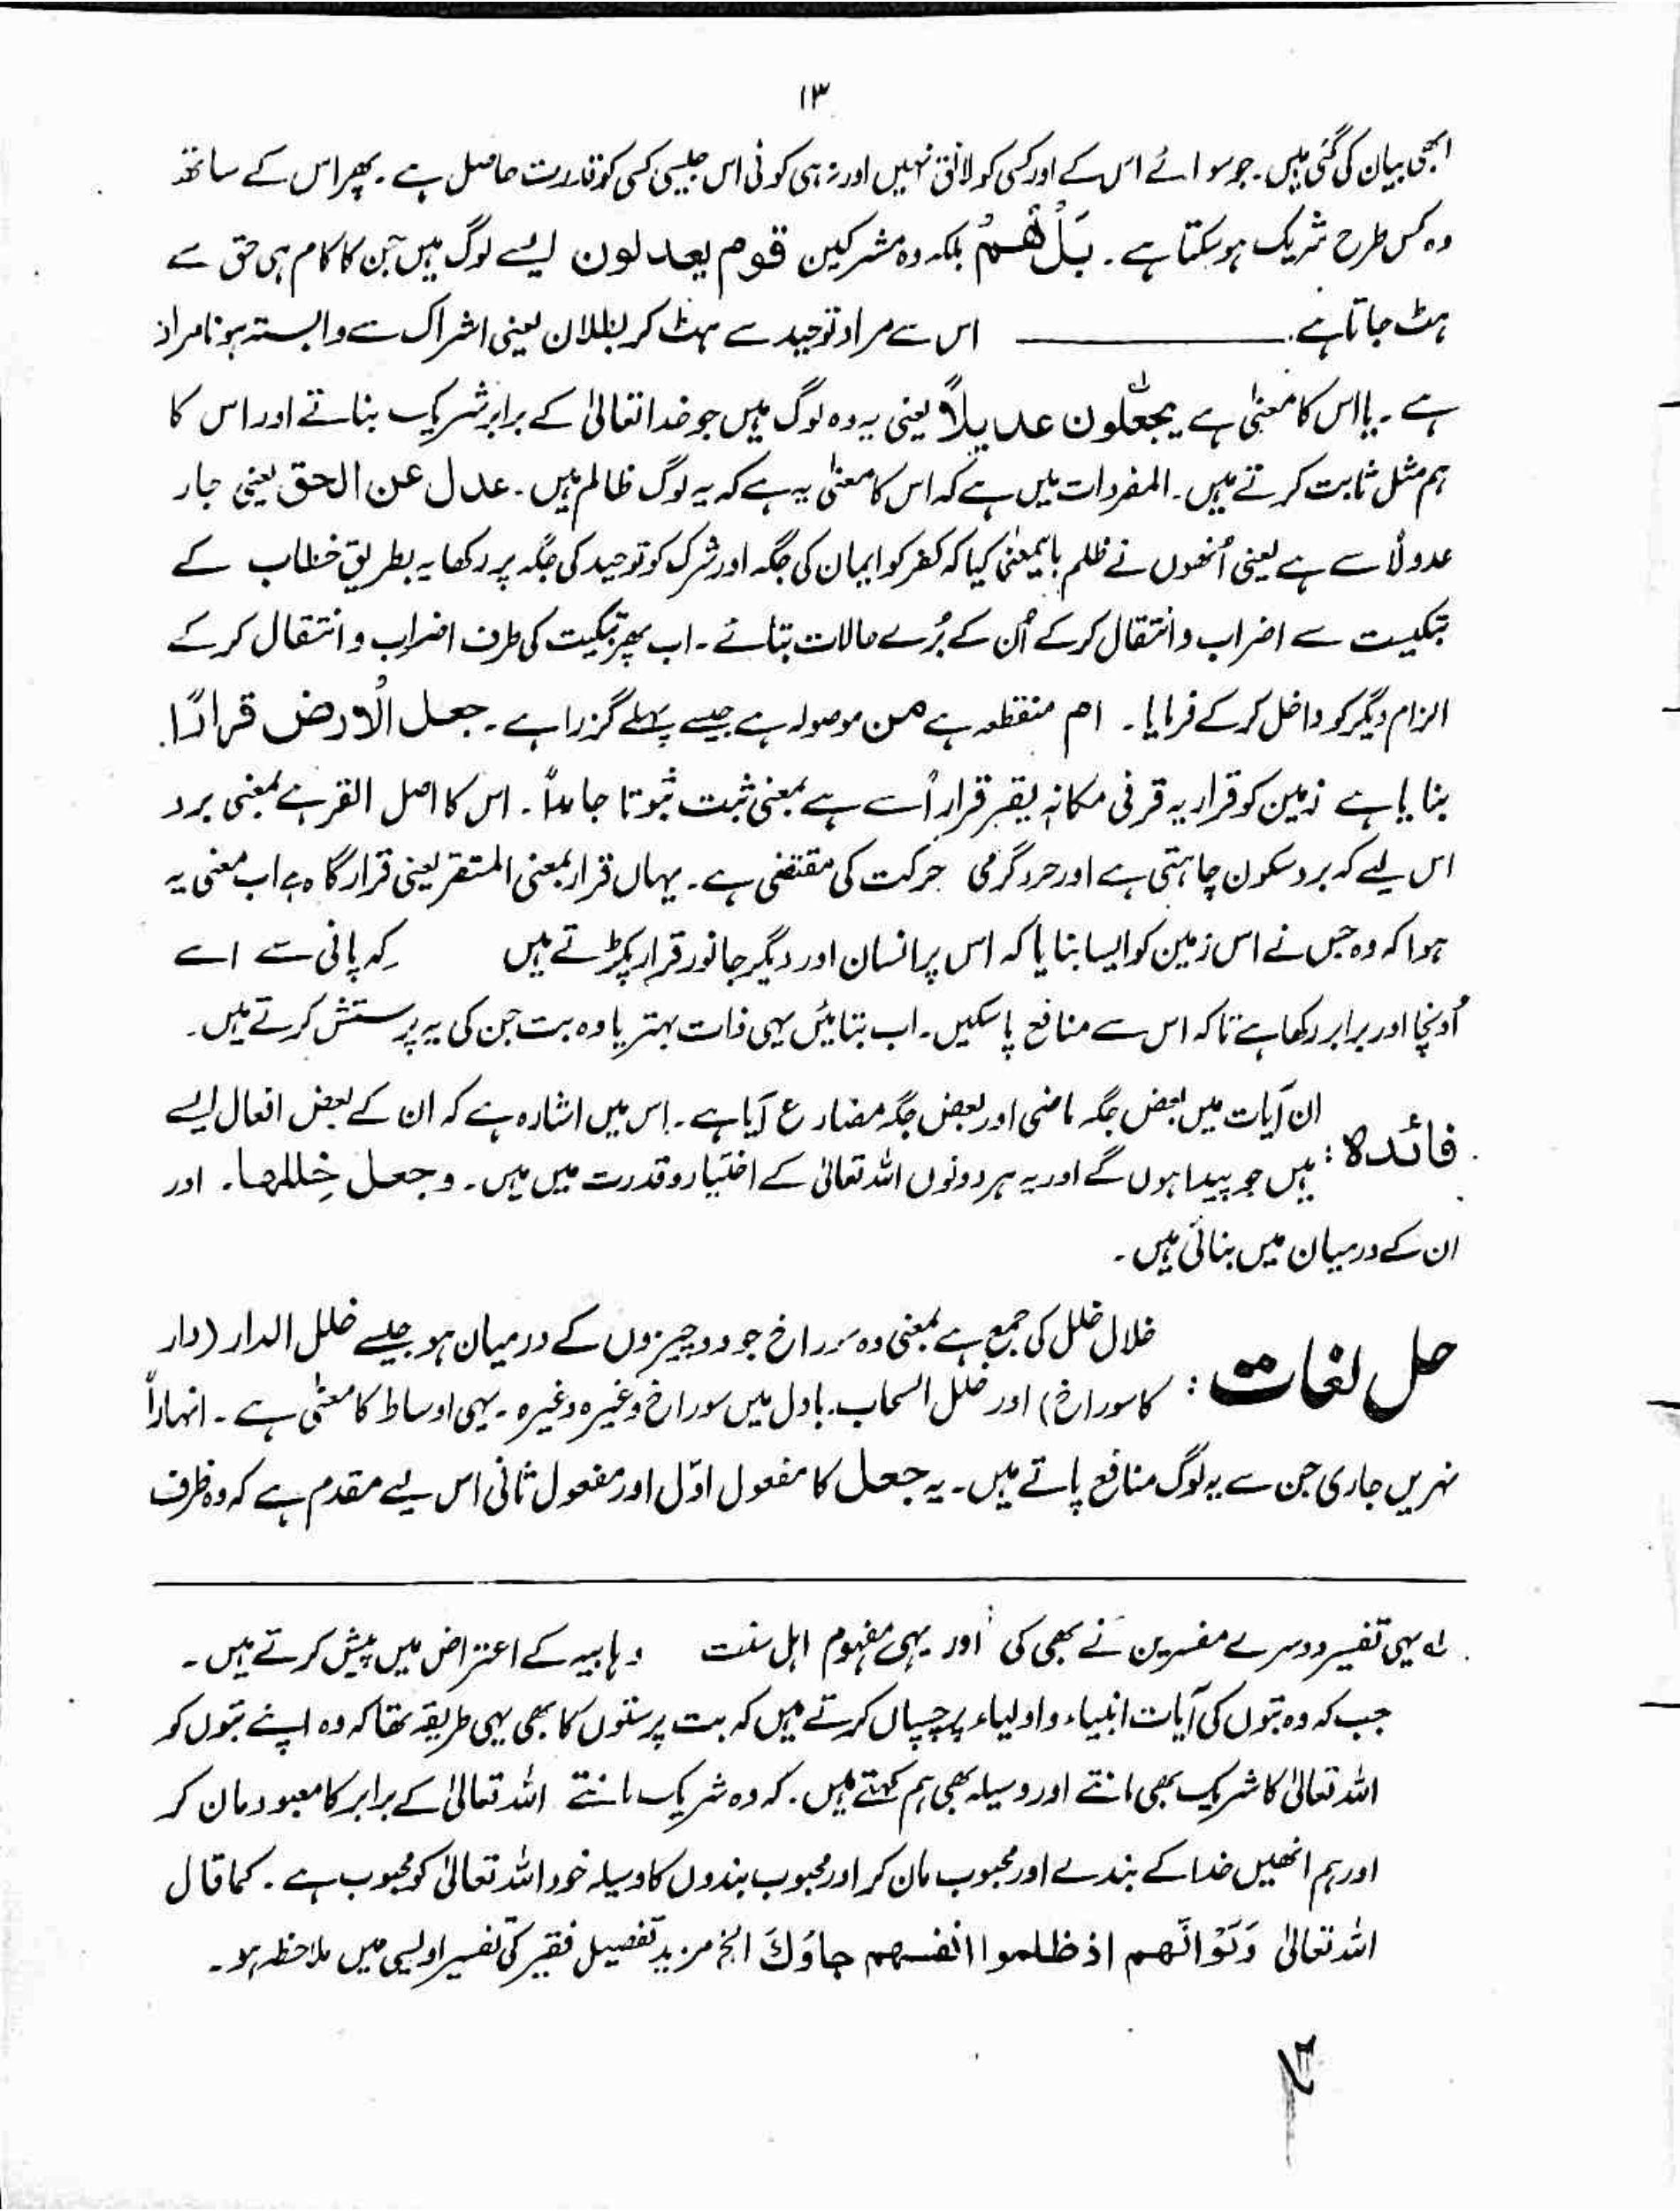 ۱۳
ابھی بیان کی گئی ہیں۔ جو سوائے اس کے اور کسی کو لائق نہیں اور نہ ہی کوئی اس جیسی کسی کو قدرت حاصل ہے۔ پھر اس کے ساتھ
وہ کس طرح شریک ہو سکتا ہے۔ بَلْ هُمْ بلکہ وہ مشرکین قوم یعدلون ایسے لوگ ہیں جن کا کام ہی حق سے
ہٹ جانا ہے۔ ـــــــــــــــــ اس سے مراد توحید سے ہٹ کر بطلان یعنی اشراک سے وابستہ ہونا مراد
ہے۔ یا اس کا معنیٰ ہے یجعلون عدیلاً یعنی یہ وہ لوگ ہیں جو خدا تعالیٰ کے برابر شریک بناتے اور اس کا
ہم مثل ثابت کرتے ہیں۔ المفردات میں ہے کہ اس کا معنیٰ یہ ہے کہ یہ لوگ ظالم ہیں۔ عدل عن الحق یعنی جار
عدولاً سے ہے یعنی اُنھوں نے ظلم بایمعنیٰ کیا کہ کفر کو ایمان کی جگہ اور شرک کو توحید کی جگہ پر رکھا یہ بطریق خطاب کے
تبکیت سے اضراب و انتقال کر کے اُن کے بُرے حالات بتائے۔ اب پھر تبکیت کی طرف اضراب و انتقال کر کے
الزام دیگر کو داخل کر کے فرمایا۔ ام منقطعہ ہے من موصولہ ہے جیسے پہلے گزرا ہے۔ جعل الْارض قرارًا۔
بنایا ہے زمین کو قرار یہ قر فی مکانہ یقر قراراً سے ہے بمعنی ثبت ثبوتا جامداً۔ اس کا اصل القر ہے بمعنی برد
اس لیے کہ برد سکون چاہتی ہے اور حر دگرمی حرکت کی مقتضی ہے۔ یہاں قرار بمعنی المتقر یعنی قرار گاہ ہے اب معنی یہ
ہوا کہ وہ جس نے اس زمین کو ایسا بنایا کہ اس پر انسان اور دیگر جانور قرار پکڑتے ہیں کہ پانی سے اسے
اُونچا اور برابر رکھا ہے تاکہ اس سے منافع پا سکیں۔ اب بتائیں یہی ذات بہتر یا وہ بت جن کی یہ پرستش کرتے ہیں۔
فائدہ: ان آیات میں بعض جگہ ماضی اور بعض جگہ مضارع آیا ہے۔ اس میں اشارہ ہے کہ ان کے بعض افعال ایسے
ہیں جو پیدا ہوں گے اور یہ ہر دونوں اللہ تعالیٰ کے اختیار و قدرت میں ہیں۔ وجعل خِللھا۔ اور
ان کے درمیان میں بنائی ہیں۔
حل لغات: خلال خلل کی جمع ہے بمعنی وہ سوراخ جو دو چیزوں کے درمیان ہو جیسے خلل الدار (دار
کا سوراخ) اور خلل السحاب۔ بادل میں سوراخ وغیرہ وغیرہ۔ یہی اوساط کا معنیٰ ہے۔ انہاراً
نہریں جاری جن سے یہ لوگ منافع پاتے ہیں۔ یہ جعل کا مفعول اوّل اور مفعول ثانی اس لیے مقدم ہے کہ وہ ظرف
لے یہی تفسیر دوسرے مفسرین نے بھی کی اور یہی مفہوم اہل سنت وہابیہ کے اعتراض میں پیش کرتے ہیں۔
جب کہ وہ بتوں کی آیات انبیاء و اولیاء پر چسپاں کرتے ہیں کہ بت پرستوں کا بھی یہی طریقہ تھا کہ وہ اپنے بتوں کو
اللہ تعالیٰ کا شریک بھی مانتے اور وسیلہ بھی ہم کہتے ہیں۔ کہ وہ شریک مانتے اللہ تعالیٰ کے برابر کا معبود مان کر
اور ہم انھیں خدا کے بندے اور محبوب مان کر اور محبوب بندوں کا وسیلہ خود اللہ تعالیٰ کو محبوب ہے۔ کما قال
اللہ تعالیٰ وَلَوْ انّھم اذ ظلموا انفسھم جاؤكَ الخ مزید تفصیل فقیر کی تفسیر اویسی میں ملاحظہ ہو۔